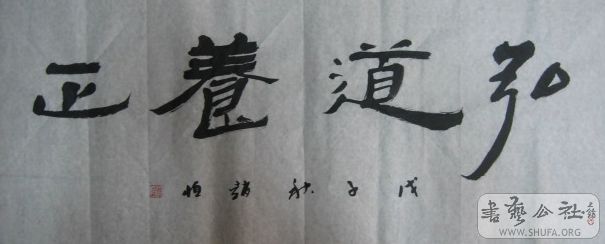 弘道養正
戊子秋
書藝公社
WWW.SHUFA.ORG